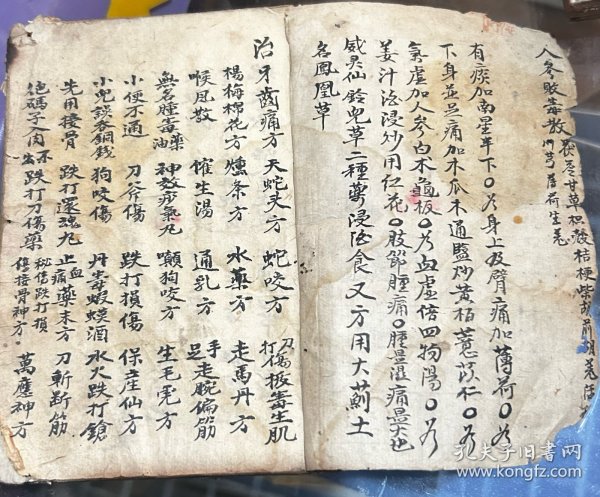 人參敗毒散 茯苓甘草枳殼桔梗柴胡前胡羌活
川芎薄荷生姜
有痰加南星半下〇為身上及臂痛加薄荷〇為
下身並足痛加木瓜木通盬炒黃栢薏苡仁〇為
氣虛加人參白朮龜板〇為血虛倍四物湯〇為
姜汁酒浸炒用紅花〇肢節腫痛〇腫是濕痛是火也
威灵仙鈴兜草二種萬浸酒食又方用大薊土
名鳳凰草
治牙齒痛方 天蛇头方 蛇咬方 刀傷拔毒生肌
楊梅棉花方 燻条方 水藥方 走馬丹方
喉風散 催生湯 通乳方 手足走腕偏筋
無名腫毒藥油 神效痧氣丸 嚬狗咬方 生毛禿方
小便不通 刀斧傷 跌打損傷 保產仙方
小兒誤吞銅錢 狗咬傷 丹毒蝦蟆酒 水火跌打鎗
先用接骨 跌打還魂丸 止血痛藥末方 刀斬斷筋
鉛碼子入肉不出 跌打刀傷藥 秘傳跌打損傷接骨神方 萬應神方
孔夫子旧书网
www.kongfz.com